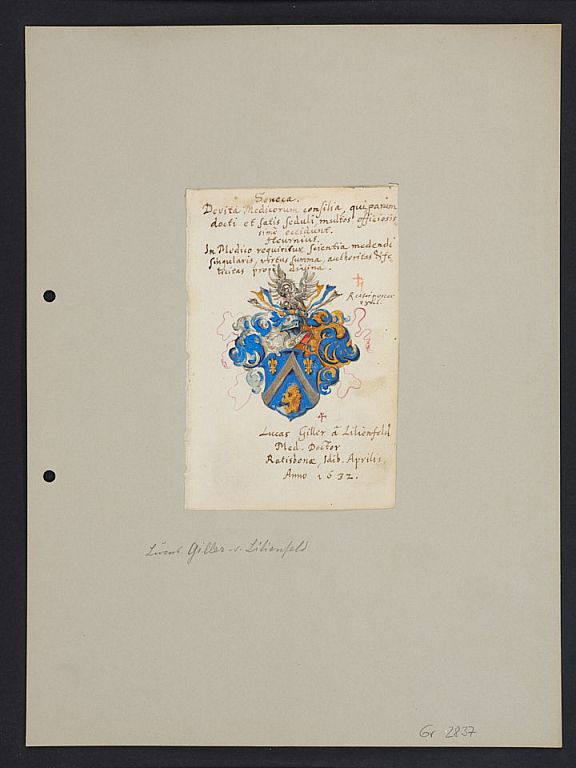 Seneca.
Devita Medicorum consilia, qui parum
docti et satis seduli, multos officiosis
simè occidunt.
Heurnius.
In Medico requiritur scientia medendi
singularis, virtus summa, authoritas & fe-
licitas divina.
Lucas Giller â Lilienfeld
Med. Doctor
Ratisbonæ, Idib. Aprilis
Anno 1632.
Lucas Giller v. Lilienfeld
Gr 2837